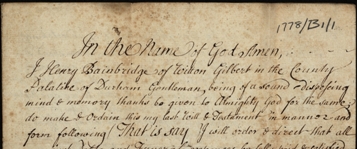 1778/B1/1
In the Name of God Amen
I Henry Bainbridge of Witton Gilbert in the County
Palatine of Durham Gentleman, being of a sound & disposing
mind & memory thanks be given to Almighty God for the same
do make & Ordain this my last Will & Testament in manner and
form following That is say I will order & direct that all